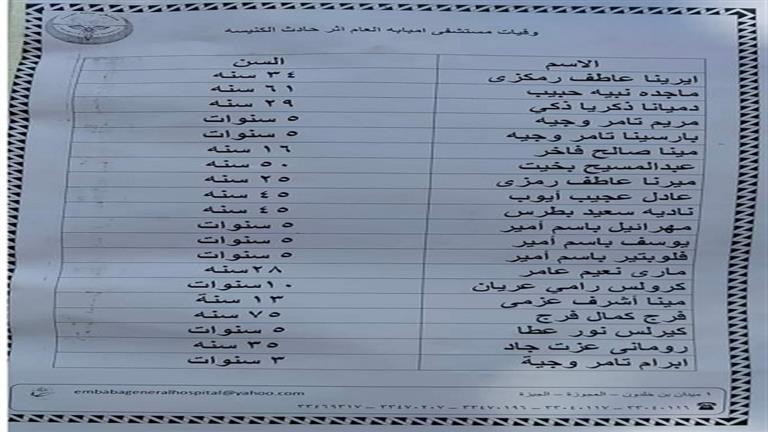 وفيات مستشفى امبابه العام اثر حادث الكنيسه
الاسم السن
ايرينا عاطف رمكزى ٣٤ سنه
ماجده نبيه حبيب ٦١ سنه
دميانا ذكريا ذكي ٢٩ سنه
مريم تامر وجيه ٥ سنوات
بارسينا تامر وجيه ٥ سنوات
مينا صالح فاخر ١٦ سنه
عبدالمسيح بخيت ٥٠ سنه
ميرنا عاطف رمزى ٢٥ سنه
عادل عجيب أيوب ٤٥ سنه
ناديه سعيد بطرس ٤٥ سنه
مهرائيل باسم أمير ٥ سنوات
يوسف باسم أمير ٥ سنوات
فلوبتير باسم أمير ٥ سنوات
مارى نعيم عامر ٢٨سنه
كرولس رامي عريان ١٠سنوات
مينا أشرف عزمى ١٣ سنة
فرج كمال فرج ٧٥ سنه
كيرلس نور عطا ٥ سنوات
رومانى عزت جاد ٣٥ سنه
ابرام تامر وجية ٣ سنوات
١ ميدان بن خلدون – العجوزة – الجيزة embabageneralhospital@yahoo.com
٣٣٠٤٠١١٦ – ٣٣٠٤٠١١٧ – ٣٣٤٧٠١٩٦ – ٣٣٤٧٠٢٠٧ – ٣٣٤٦٩٣١٧